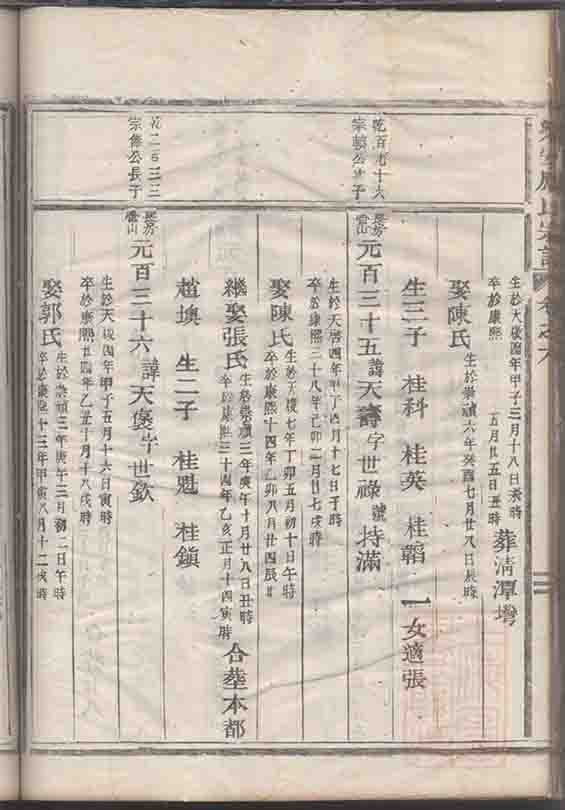 生於天啟四年甲子三月十八日癸時
卒於康熙 五月廿五日丑時 葬清潭灣
娶陳氏 生於崇禎六年癸酉七月廿八日辰時
生三子 桂科 桂英 桂韜 一女適張
宗 公 子
元百三十五諱天壽字世祿號持滿
生於天啓四年甲子四月十七日子時
卒於康熙三十八年己卯二月廿七戌時
娶陳氏 生於天啟七年丁卯五月初十日午時
卒於康熙十四年乙卯八月廿四辰時
繼娶張氏 生於崇禎三年庚午十月廿八日丑時
卒於康熙三十四年乙亥正月十四寅時 合塟本都
趙墺 生二子 桂魁 桂鎮
宗 公長子
元百三十六諱天褒字世欽
生於天啟四年甲子五月十六日寅時
卒於康熙廿四年乙丑十月十八戌時
娶郭氏 生於崇禎三年庚午三月初二日午時
卒於康熙十三年甲寅八月十二戌時